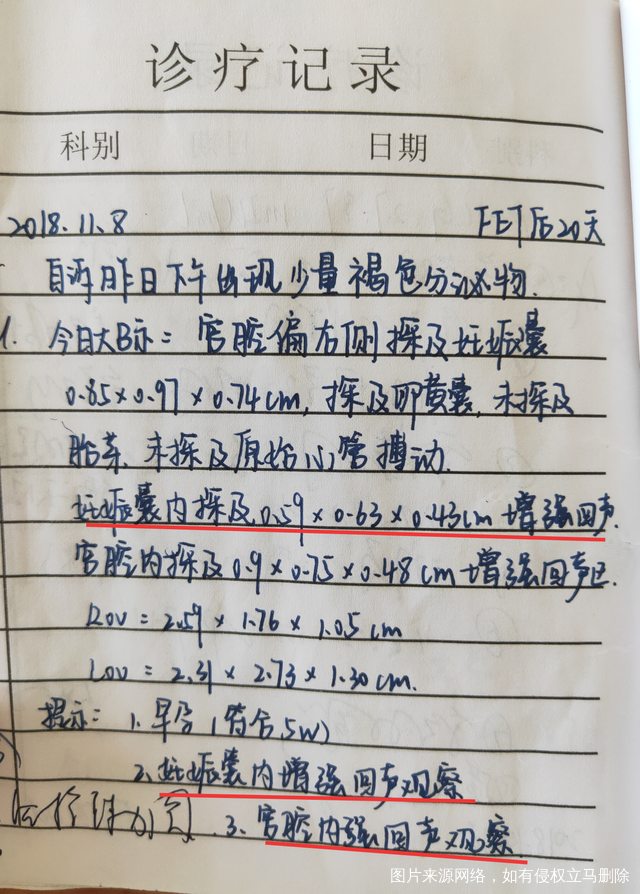 诊疗记录
科别 日期
2018.11.8 FET后20天
自诉昨日下午出现少量褐色分泌物.
1. 今日大B示: 宫腔偏右侧探及妊娠囊
0.85×0.97×0.74cm, 探及卵黄囊, 未探及
胎芽, 未探及原始心管搏动.
妊娠囊内探及0.59×0.63×0.43cm增强回声.
宫腔内探及0.9×0.75×0.48cm增强回声区.
Rov = 2.59×1.76×1.05cm
Lov = 2.31×2.73×1.30cm.
提示: 1.早孕(符合5W)
2.妊娠囊内增强回声观察
3.宫腔内强回声观察
图片来源网络,如有侵权立马删除